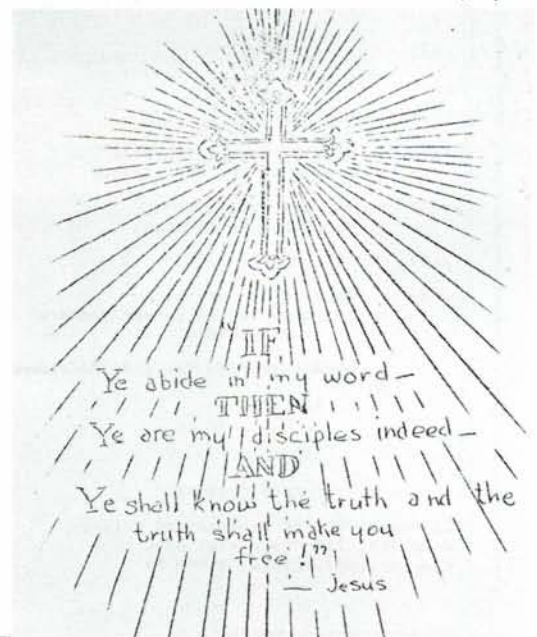 "IF
Ye abide in my word—
THEN
Ye are my disciples indeed—
AND
Ye shall know the truth and the
truth shall make you
free!"
— Jesus